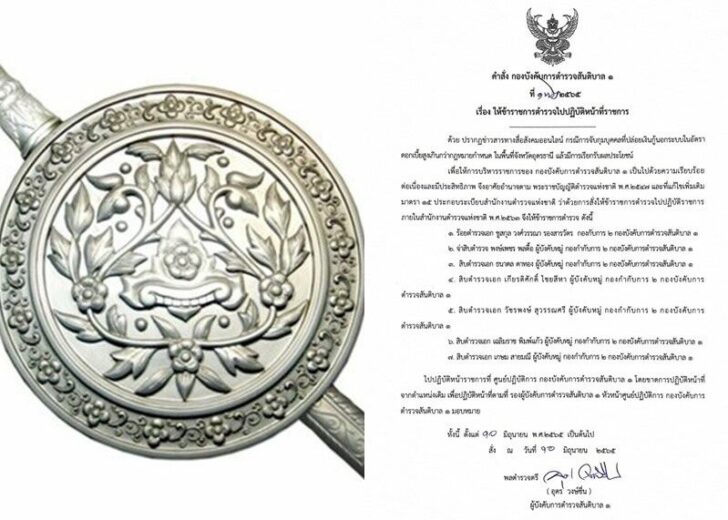 คำสั่ง กองบังคับการตำรวจสันติบาล ๑
ที่ ๒๕๖๕
เรื่อง ให้ข้าราชการตำรวจไปปฏิบัติหน้าที่ราชการ
ด้วย ปรากฏข่าวสารทางสื่อสังคมออนไลน์ กรณีการจับกุมบุคคลที่ปล่อยเงินกู้นอกระบบในอัตรา
ดอกเบี้ยสูงเกินกว่ากฎหมายกำหนด ในพื้นที่จังหวัดอุดรธานี แล้วมีการเรียกรับผลประโยชน์
เพื่อให้การบริหารราชการของ กองบังคับการตำรวจสันติบาล ๑ เป็นไปด้วยความเรียบร้อย
ต่อเนื่องและมีประสิทธิภาพ จึงอาศัยอำนาจตาม พระราชบัญญัติตำรวจแห่งชาติ พ.ศ.๒๕๔๗ และที่แก้ไขเพิ่มเติม
มาตรา ๑๕ ประกอบระเบียบสำนักงานตำรวจแห่งชาติ ว่าด้วยการสั่งให้ข้าราชการตำรวจไปปฏิบัติราชการ
ภายในสำนักงานตำรวจแห่งชาติ พ.ศ.๒๕๖๑ จึงให้ข้าราชการตำรวจ ดังนี้
๑. ร้อยตำรวจเอก ชูสกุล วงศ์วรรณา รองสารวัตร กองกำกับการ ๒ กองบังคับการตำรวจสันติบาล ๑
๒. จ่าสิบตำรวจ พงษ์เพชร พลตื้อ ผู้บังคับหมู่ กองกำกับการ ๒ กองบังคับการตำรวจสันติบาล ๑
๓. สิบตำรวจเอก ธนาดล ตาทอง ผู้บังคับหมู่ กองกำกับการ ๒ กองบังคับการตำรวจสันติบาล ๑
๔. สิบตำรวจเอก เกียรติศักดิ์ ไชยสีหา ผู้บังคับหมู่ กองกำกับการ ๒ กองบังคับการ
ตำรวจสันติบาล ๑
๕. สิบตำรวจเอก วัชรพงษ์ สุวรรณศรี ผู้บังคับหมู่ กองกำกับการ ๒ กองบังคับการ
ตำรวจสันติบาล ๑
๖. สิบตำรวจเอก เฉลิมราช พิมพ์แก้ว ผู้บังคับหมู่ กองกำกับการ ๒ กองบังคับการตำรวจสันติบาล ๑
๗. สิบตำรวจเอก เกษม สายมณี ผู้บังคับหมู่ กองกำกับการ ๒ กองบังคับการตำรวจสันติบาล ๑
ไปปฏิบัติหน้าราชการที่ ศูนย์ปฏิบัติการ กองบังคับการตำรวจสันติบาล ๑ โดยขาดการปฏิบัติหน้าที่
จากตำแหน่งเดิม เพื่อปฏิบัติหน้าที่ตามที่ รองผู้บังคับการตำรวจสันติบาล ๑ หัวหน้าศูนย์ปฏิบัติการ กองบังคับการ
ตำรวจสันติบาล ๑ มอบหมาย
ทั้งนี้ ตั้งแต่ ๑๐ มิถุนายน พ.ศ.๒๕๖๕ เป็นต้นไป
สั่ง ณ วันที่ ๑๐ มิถุนายน ๒๕๖๕
พลตำรวจตรี
( อุดร วงษ์ชื่น )
ผู้บังคับการตำรวจสันติบาล ๑